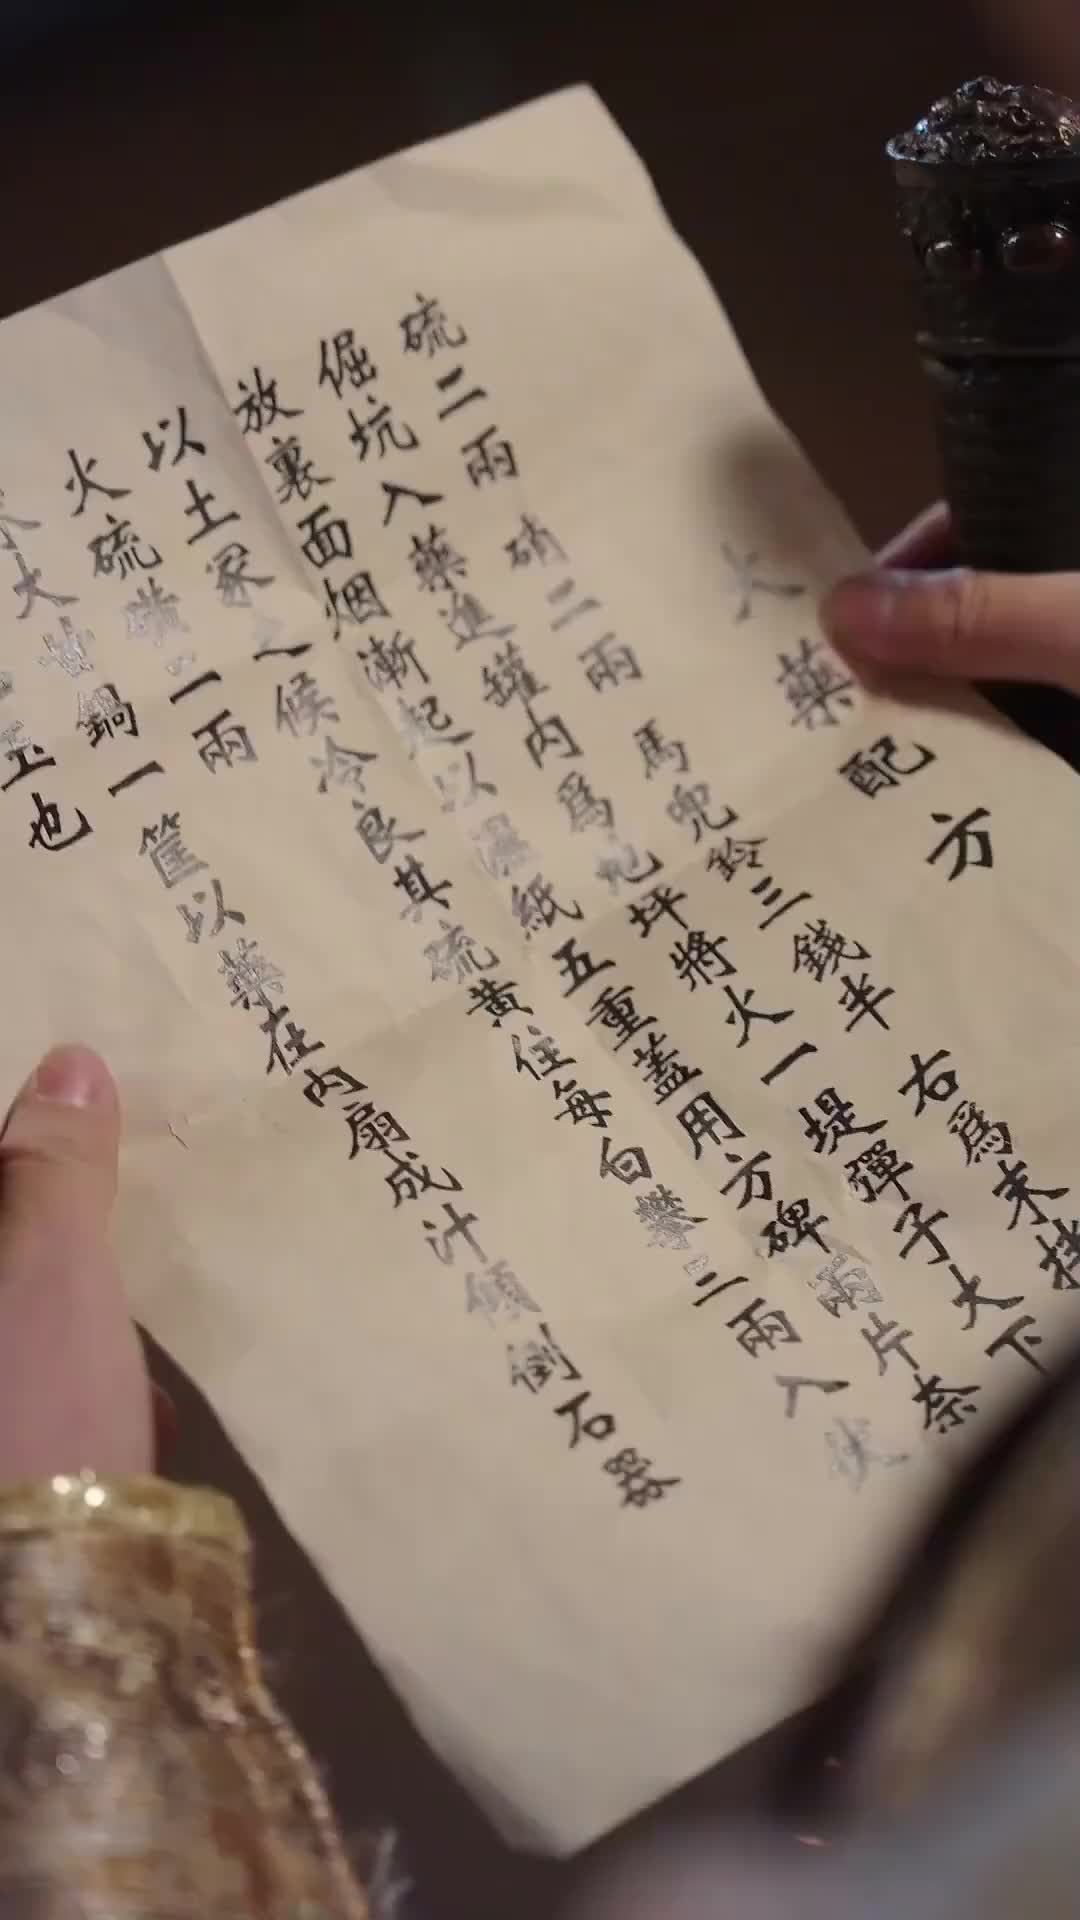 火藥配方
硫二兩 硝二兩 馬兜鈴三錢半 右爲末拌
倔坑入藥進罐内爲地坪將火一堤彈子大下
放裏面烟漸起以濕紙五重蓋用方碑兩片奈
以土冢之候冷良其硫黄住每白礬二兩入伏
火硫磺一兩
大甘鍋一筐以藥在内扇成汁傾倒石器
玉也